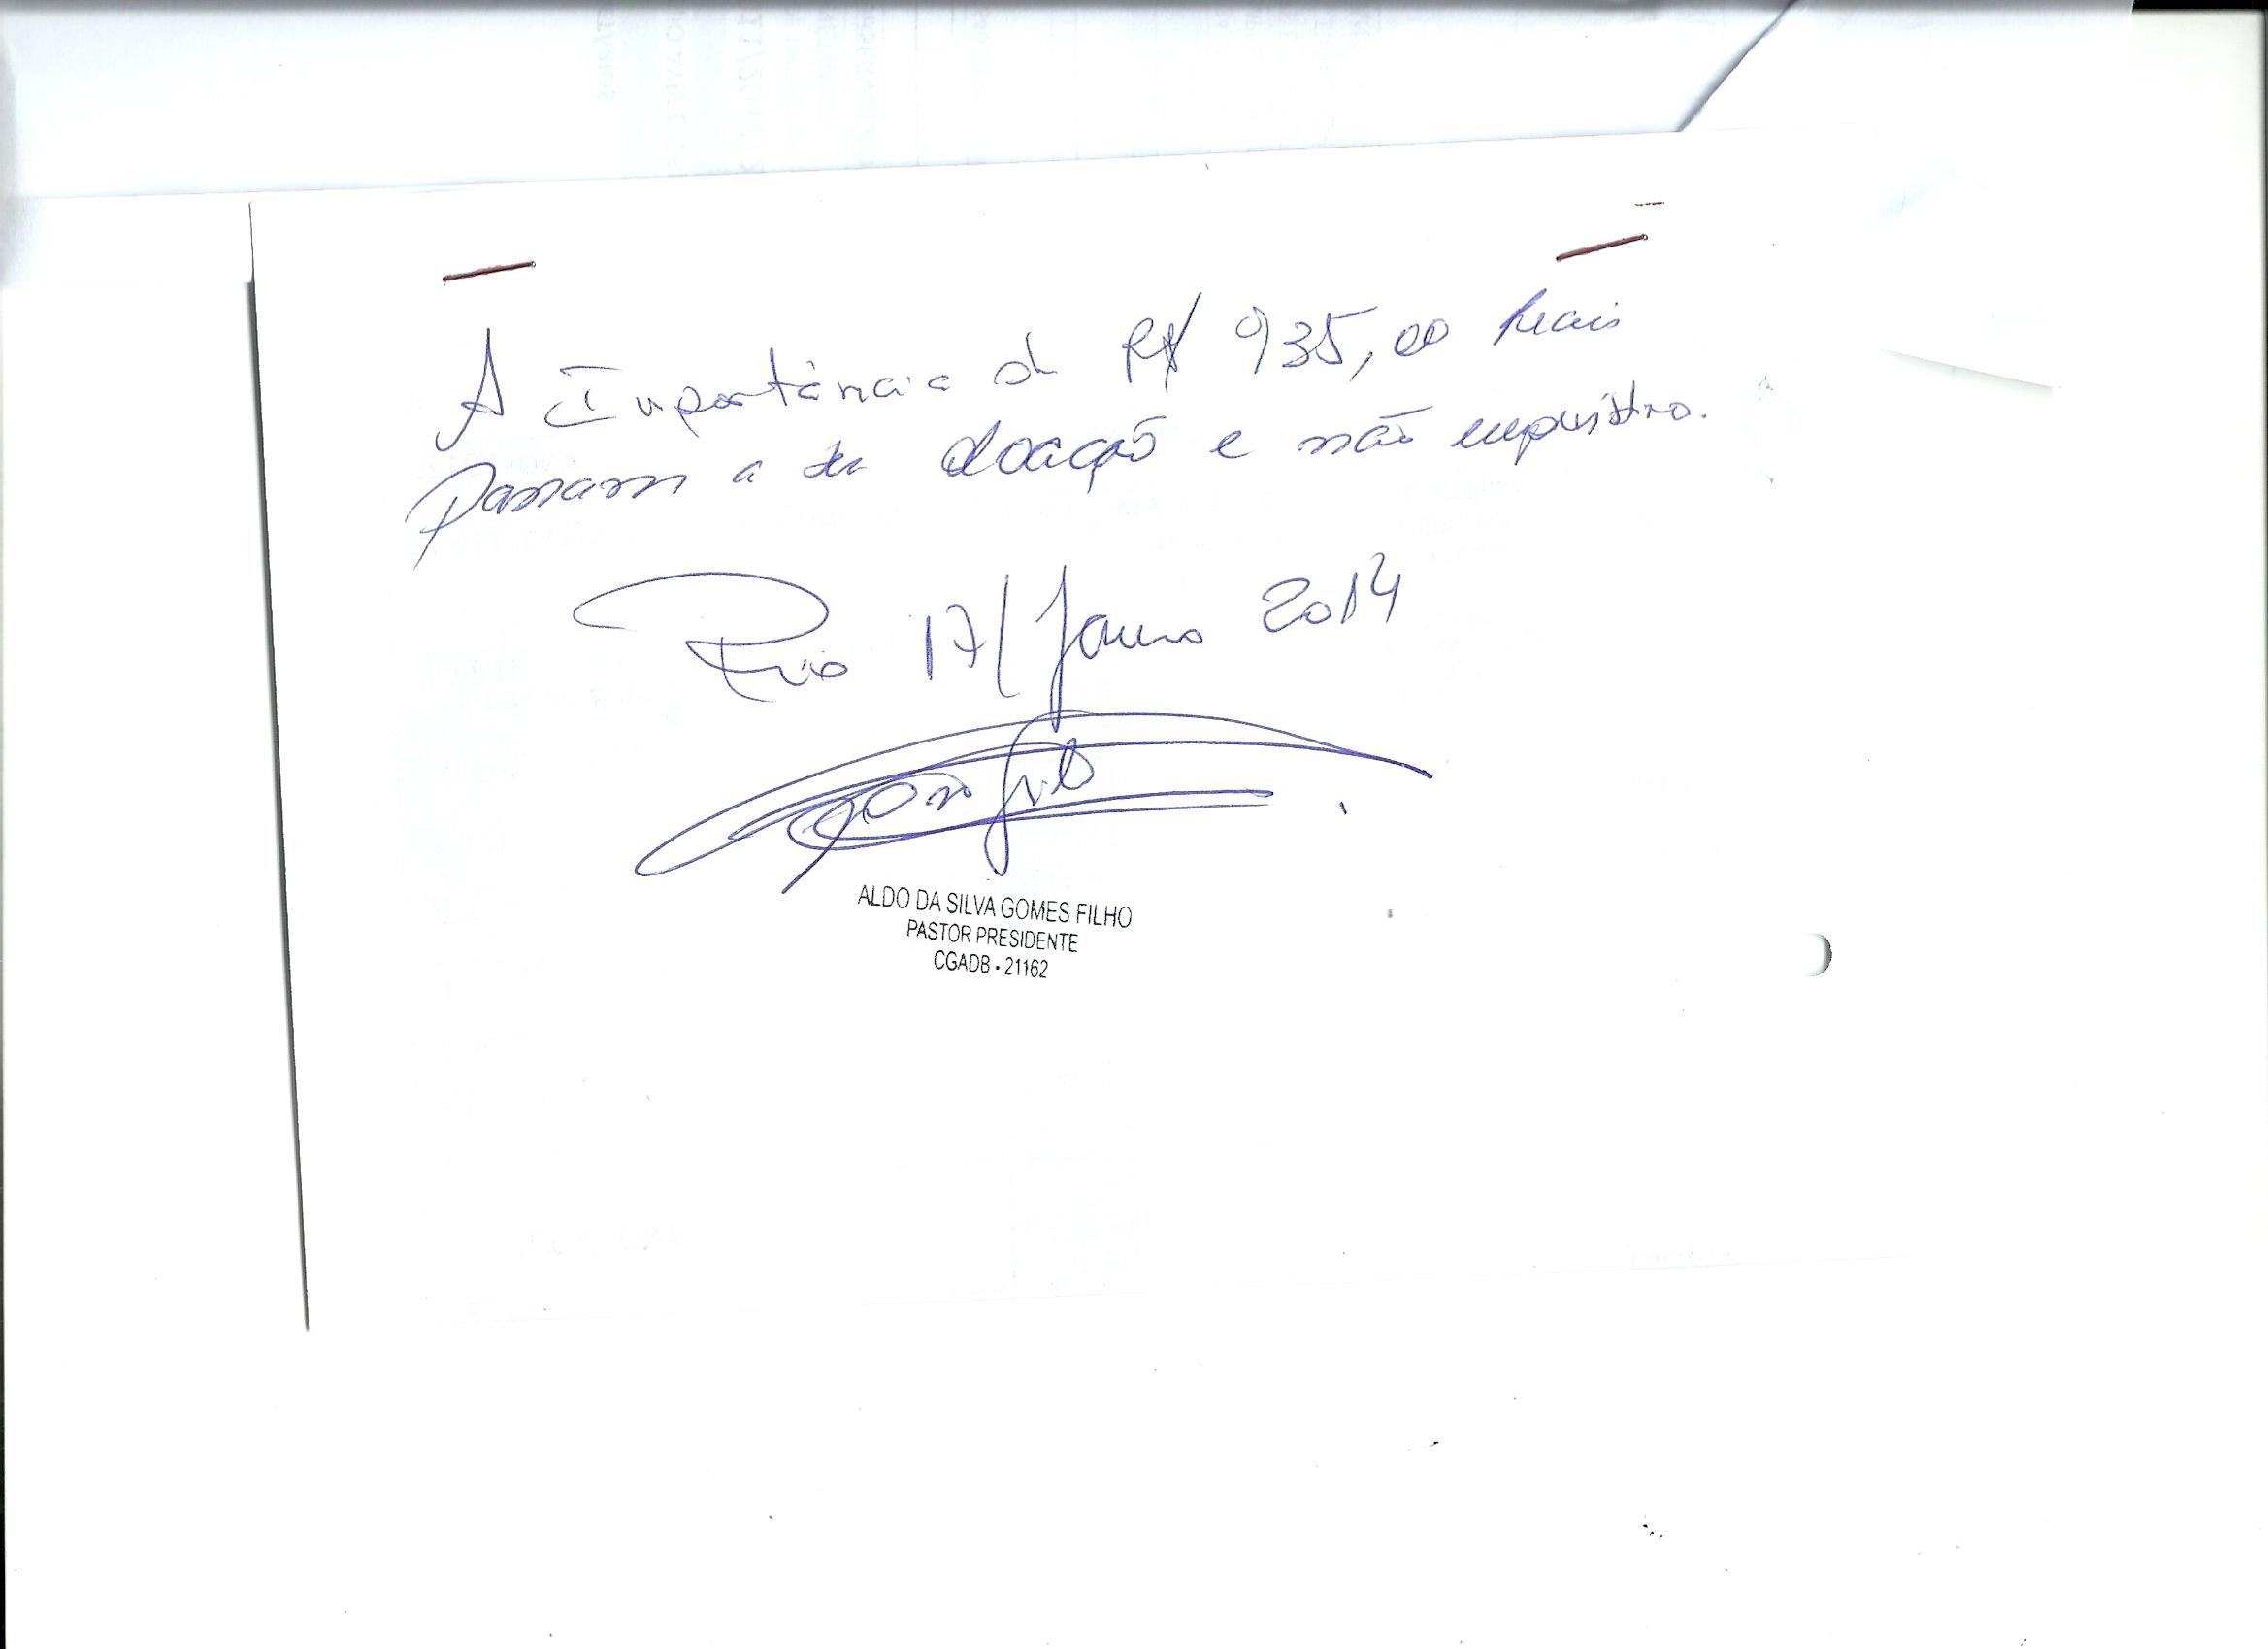 A Importância de R$ 935,00 Reais
passaram a ser doação e não empréstimo.
Rio 17/Janeiro 2014
ALDO DA SILVA GOMES FILHO
PASTOR PRESIDENTE
CGADB • 21162